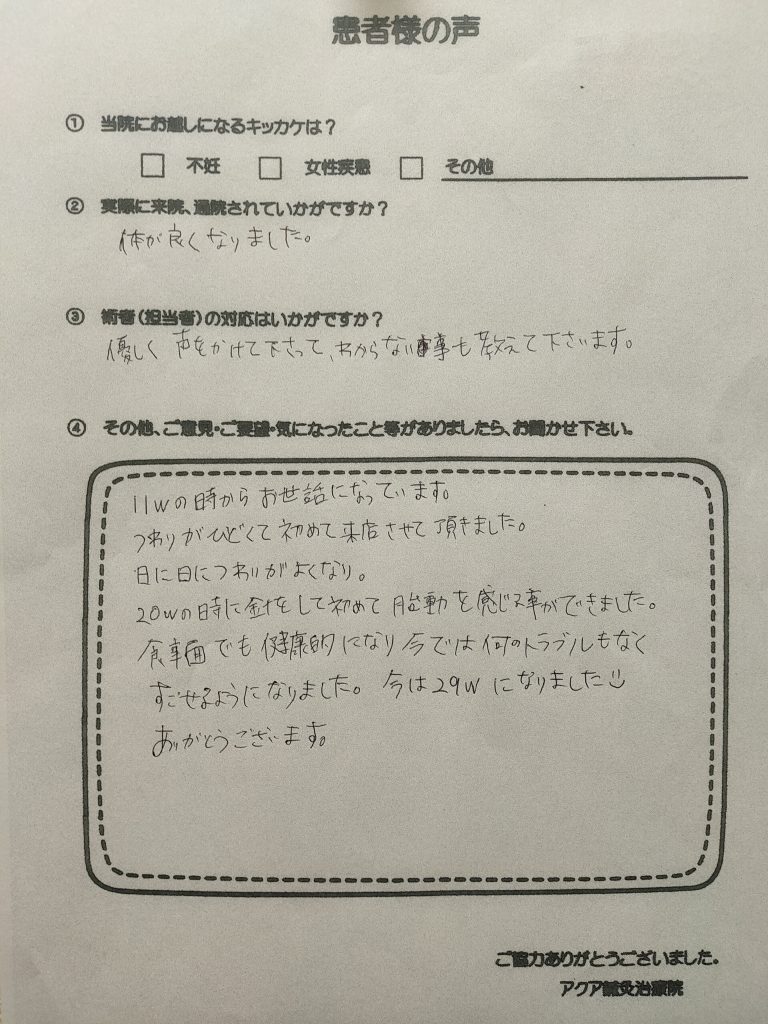 患者様の声
① 当院にお越しになるキッカケは？
□ 不妊 □ 女性疾患 □ その他
② 実際に来院、通院されていかがですか？
体が良くなりました。
③ 術者（担当者）の対応はいかがですか？
優しく 声をかけて下さって、わからない事も教えて下さいます。
④ その他、ご意見・ご要望・気になったこと等がありましたら、お聞かせ下さい。
11wの時からお世話になっています。
つわりがひどくて初めて来店させて頂きました。
日に日につわりがよくなり。
20wの時に針をして初めて胎動を感じる事ができました。
食事面でも健康的になり今では何のトラブルもなく
すごせるようになりました。今は29wになりました
ありがとうございます。
ご協力ありがとうございました。
アクア鍼灸治療院